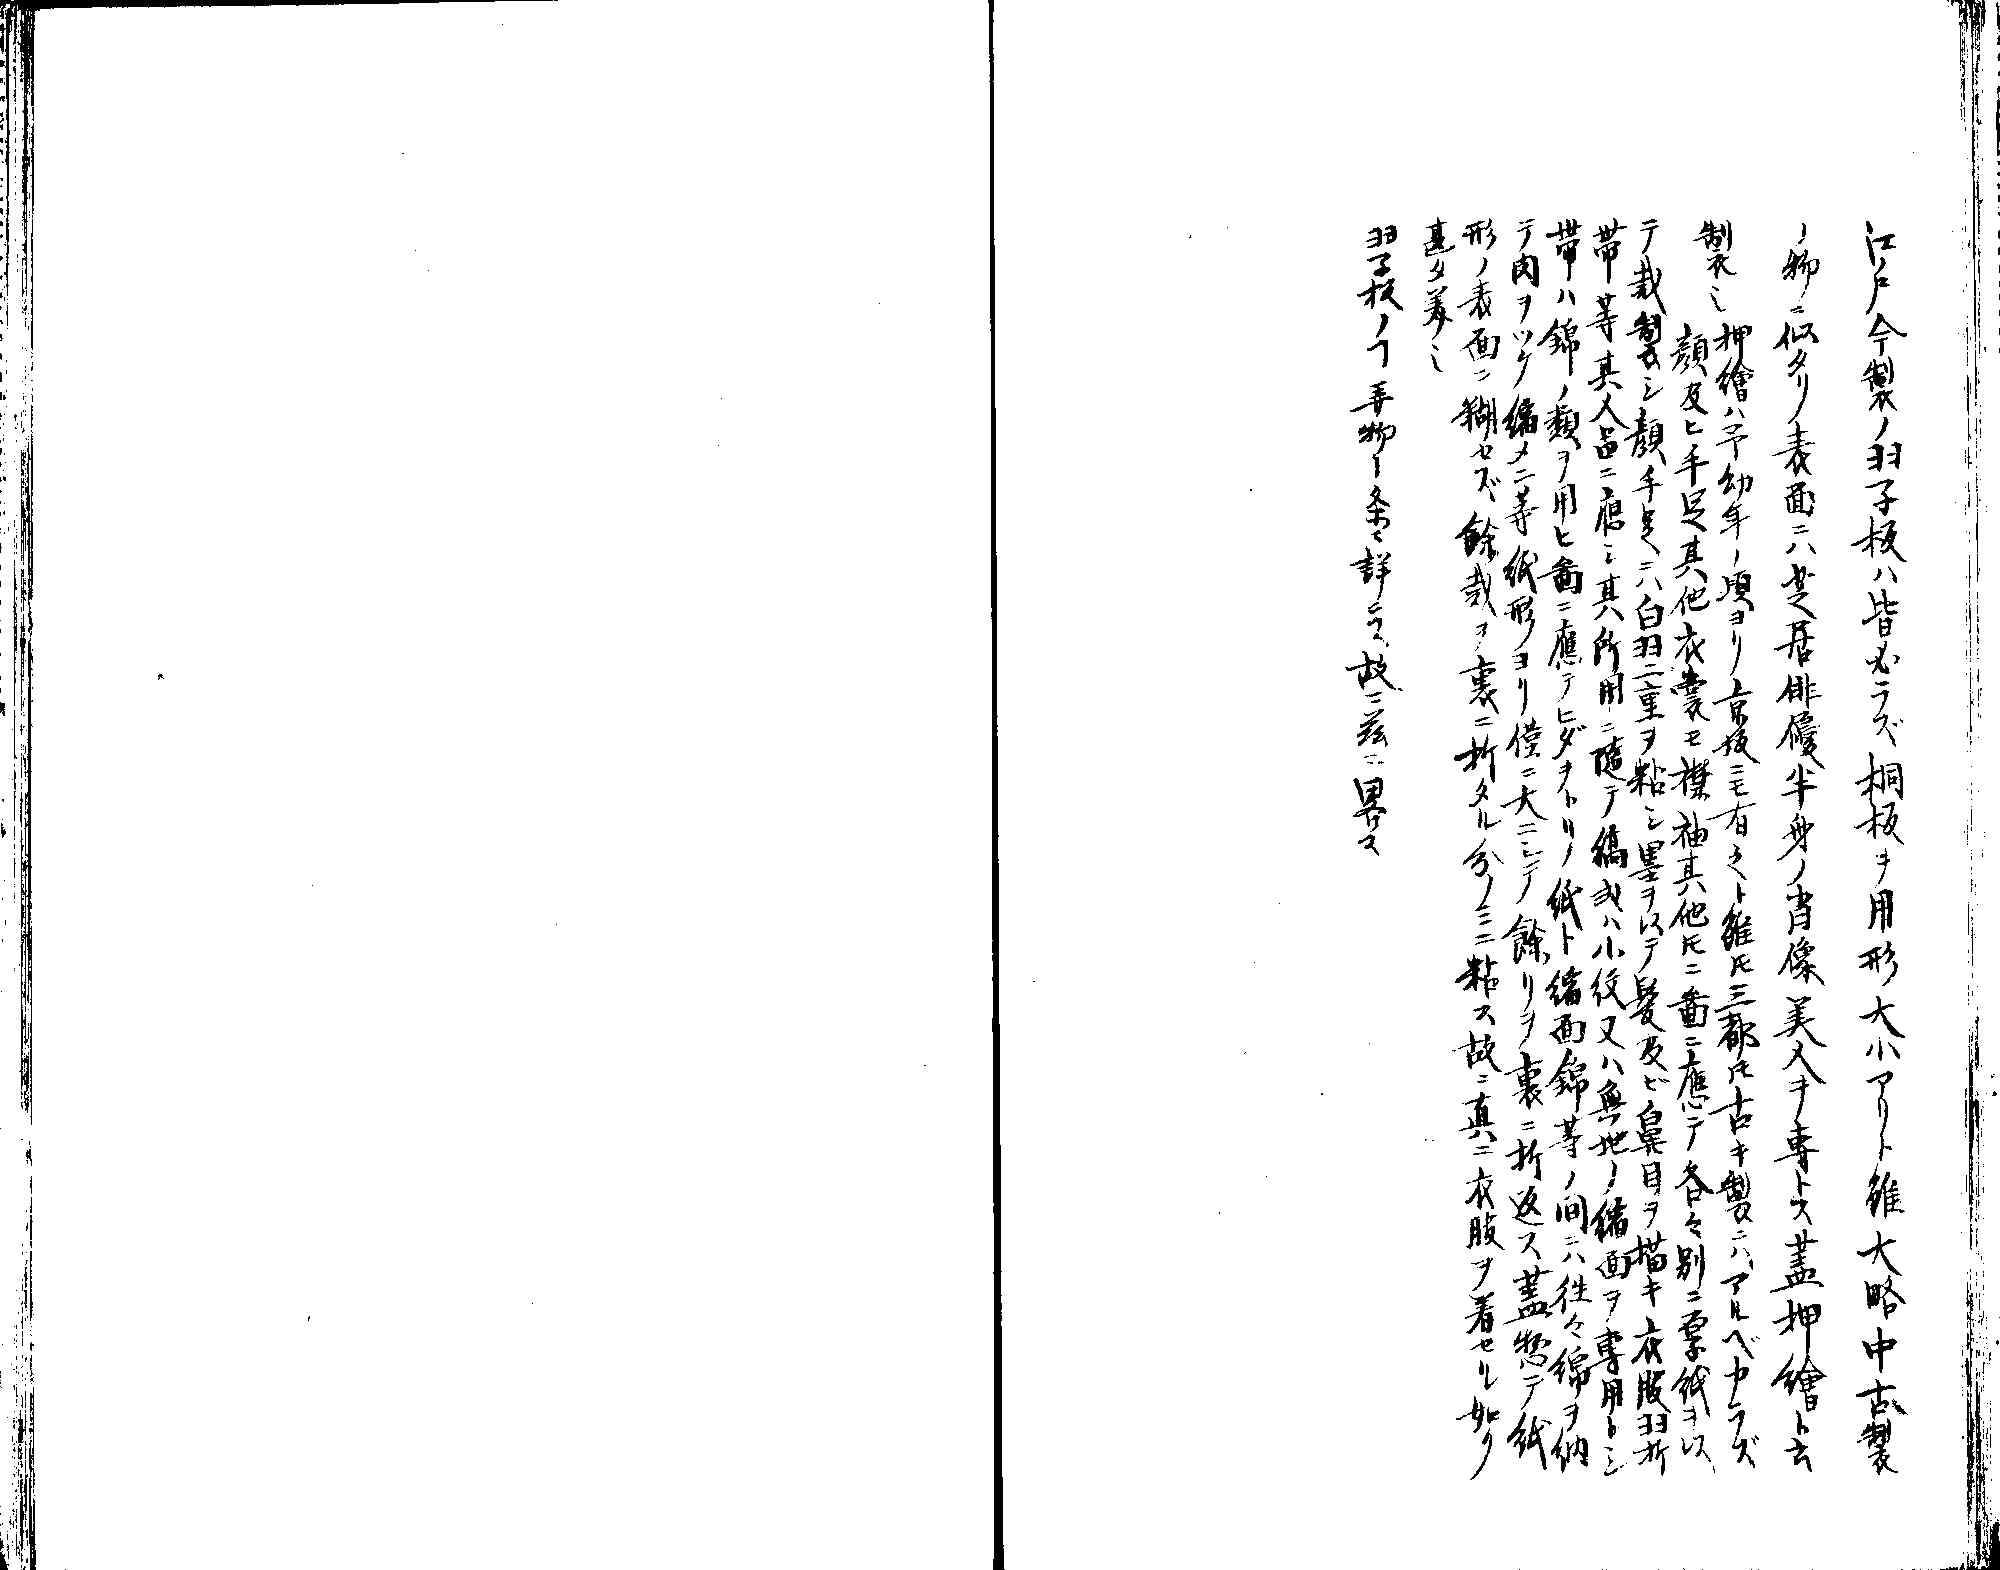 江戸今製ノ羽子板ハ皆必ラズ桐板ヲ用形大小アリト雖大略中古製
ノ物ニ似タリ表面ニハ芝居俳優半身ノ肖像美人ヲ専トス蓋押繪ト云
製シ押繪ハ予幼年ノ頃ヨリ京坂ニモ有之ト雖ㇳモ三都ㇳモ古キ製ニハアルベカラズ
顔及ヒ手足其他衣裳モ襟袖其他ㇳモニ畵ニ應テ各々別ニ厚紙ヲ以
テ裁製シ顔手足ニハ白羽二重ヲ粘シ墨ヲ以テ髪及ビ鼻目ヲ描キ衣服羽折
帯等其人品ニ應シ其所用ニ随テ縞或ハ小紋又ハ無地ノ縮面ヲ専用トシ
帯ハ錦ノ類ヲ用ヒ畵ニ應テヒダヲトリ紙ト縮面錦等ノ間ニハ往々綿ヲ納
テ肉ヲツケ縮メニ等紙形ヨリ僅ニ大ニシテ餘リヲ裏ニ折返ス蓋惣テ紙
形ノ表面ニ糊セズ餘裁ヲ裏ニ折タル分ノミニ粘ス故ニ真ニ衣服ヲ着セル如ク
甚タ美シ
羽子板ノヿ弄物ノ条ニ詳ニス故ニ茲ニ畧ス